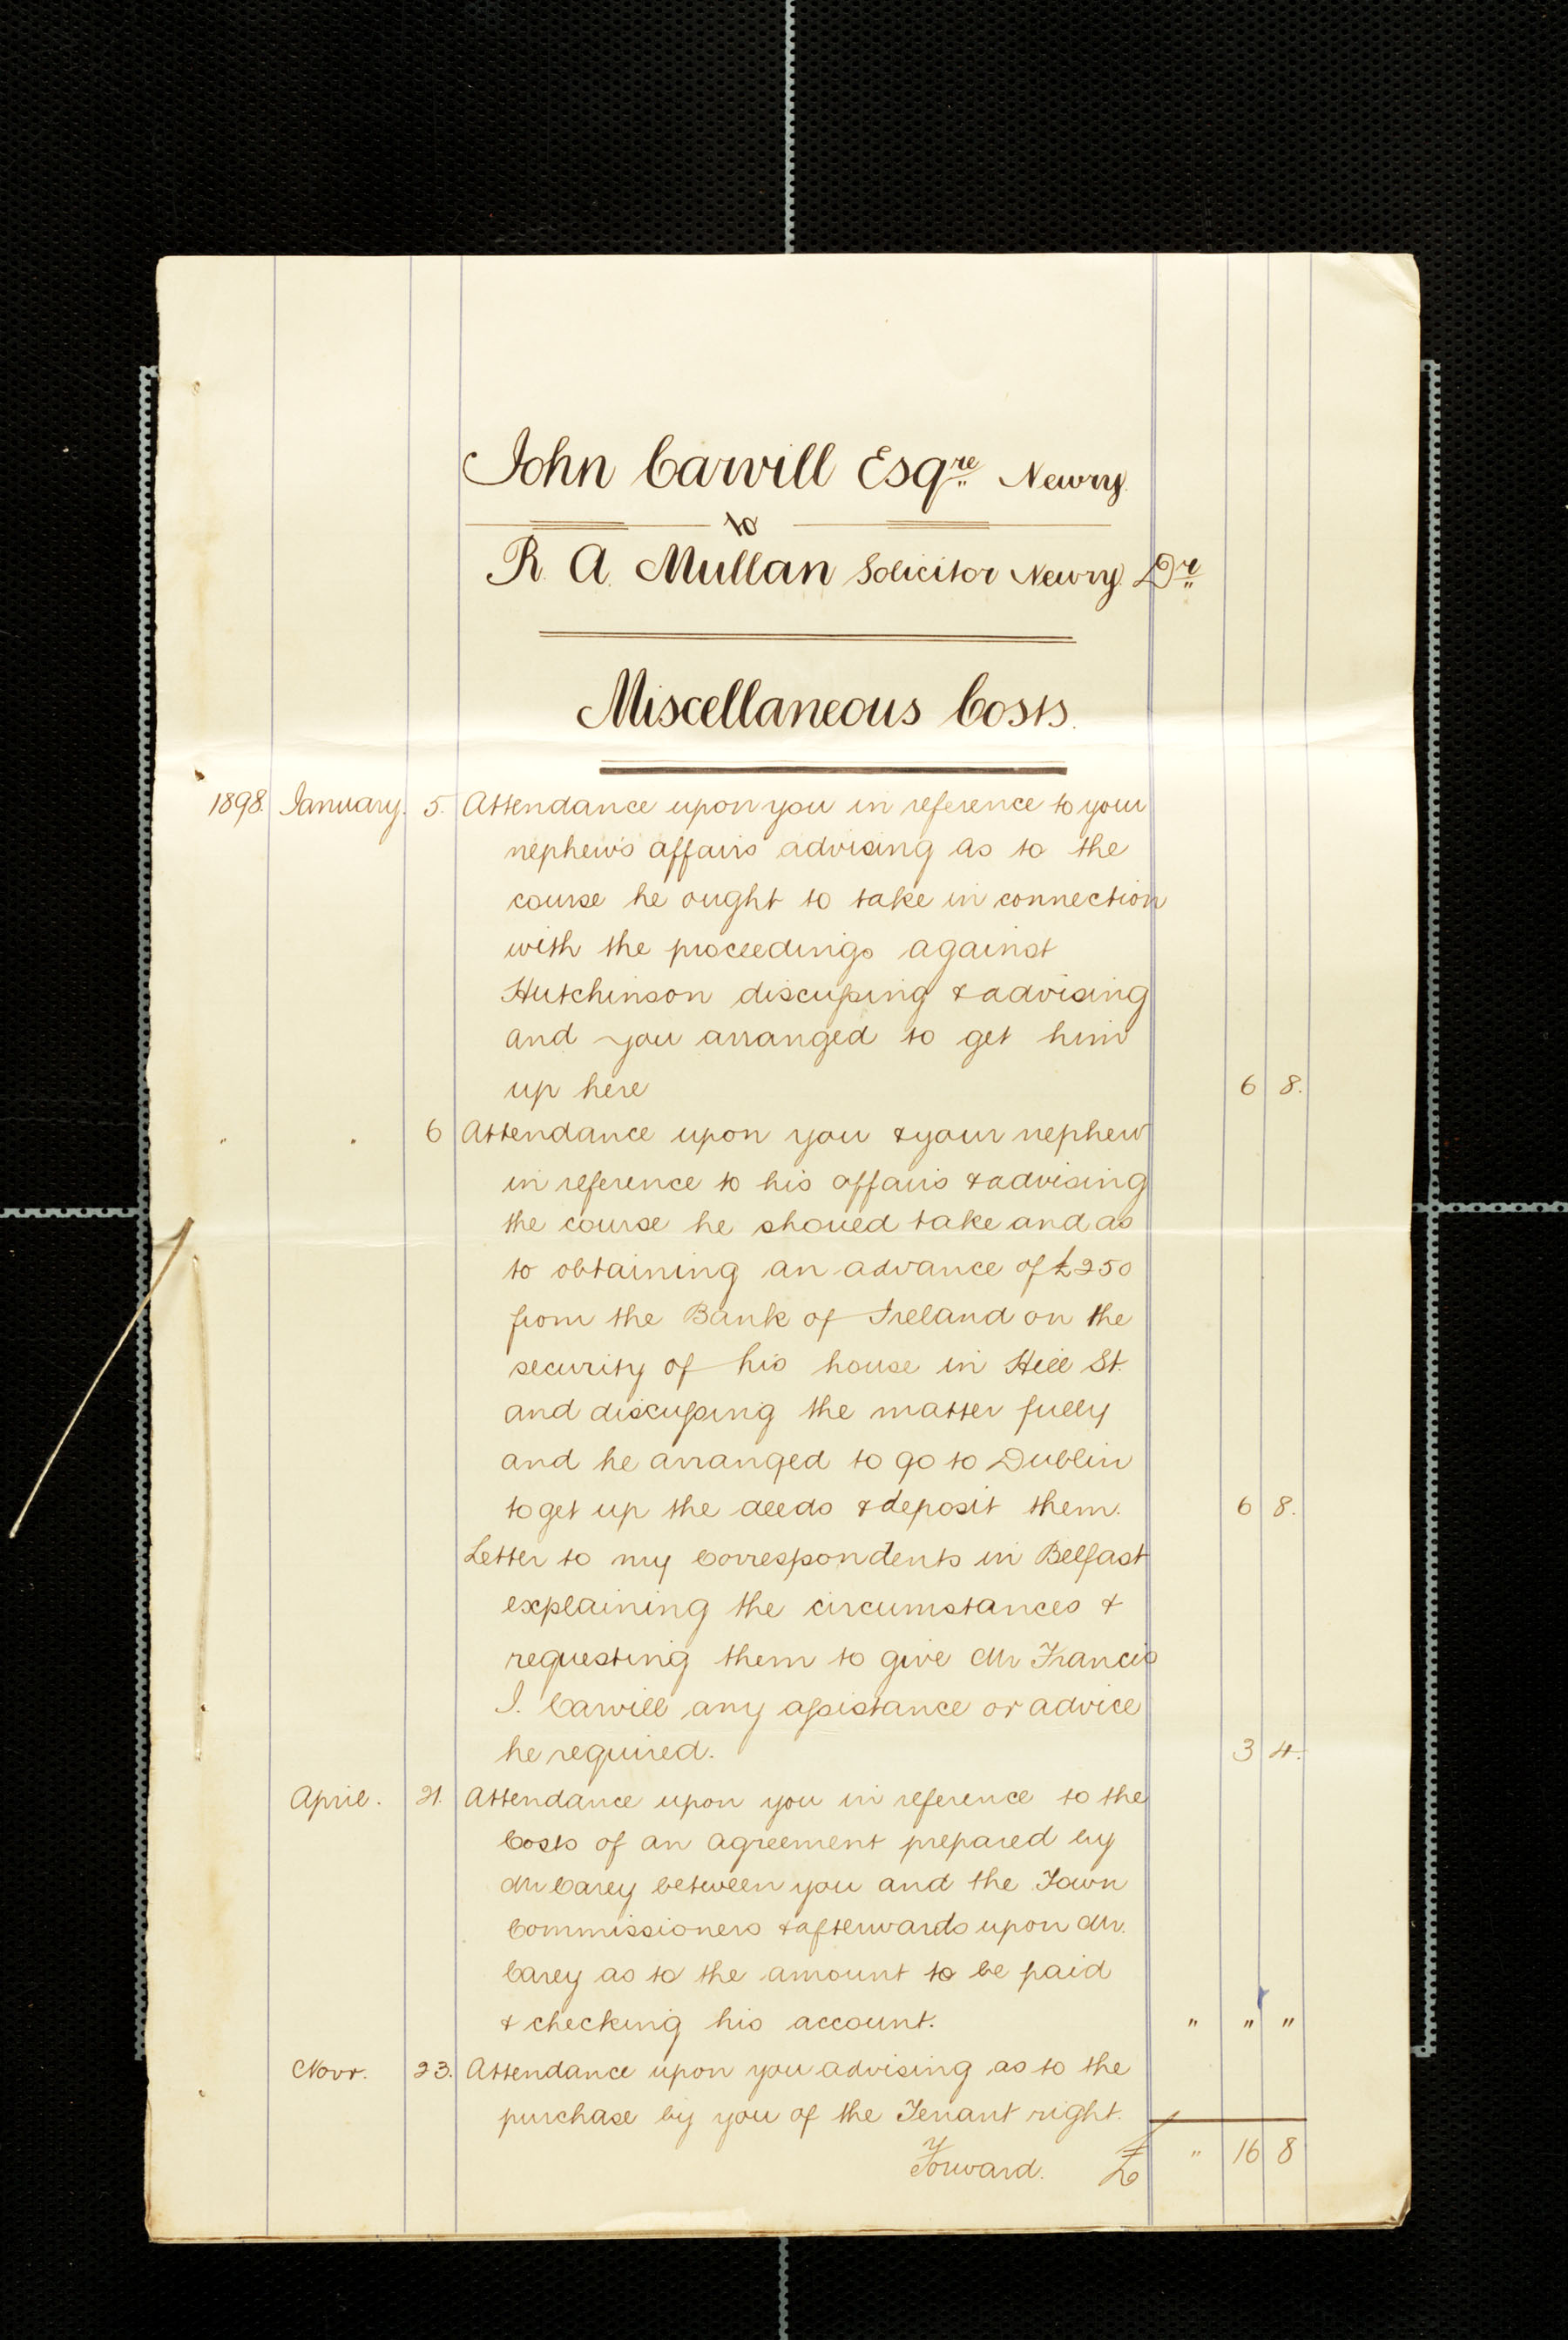 John Carvill Esqre Newry.
to
R. A. Mullan Solicitor Newry. Dr
Miscellaneous Costs.
1898. January. 5. Attendance upon you in reference to your
nephew's affairs advising as to the
course he ought to take in connection
with the proceedings against
Hutchinson discussing & advising
and you arranged to get him
up here 6 8.
" " 6 Attendance upon you & your nephew
in reference to his affairs & advising
the course he should take and as
to obtaining an advance of £250
from the Bank of Ireland on the
security of his house in Hill St.
and discussing the matter fully
and he arranged to go to Dublin
to get up the deeds & deposit them. 6 8.
Letter to my Correspondents in Belfast
explaining the circumstances &
requesting them to give Mr Francis
J. Carvill any assistance or advice
he required. 3 4.
April. 21. Attendance upon you in reference to the
Costs of an Agreement prepared by
Mr Carey between you and the Town
Commissioners & afterwards upon Mr.
Carey as to the amount to be paid
& checking his account. " " "
Novr. 23. Attendance upon you advising as to the
purchase by you of the Tenant right.
Forward. £ " 16 8